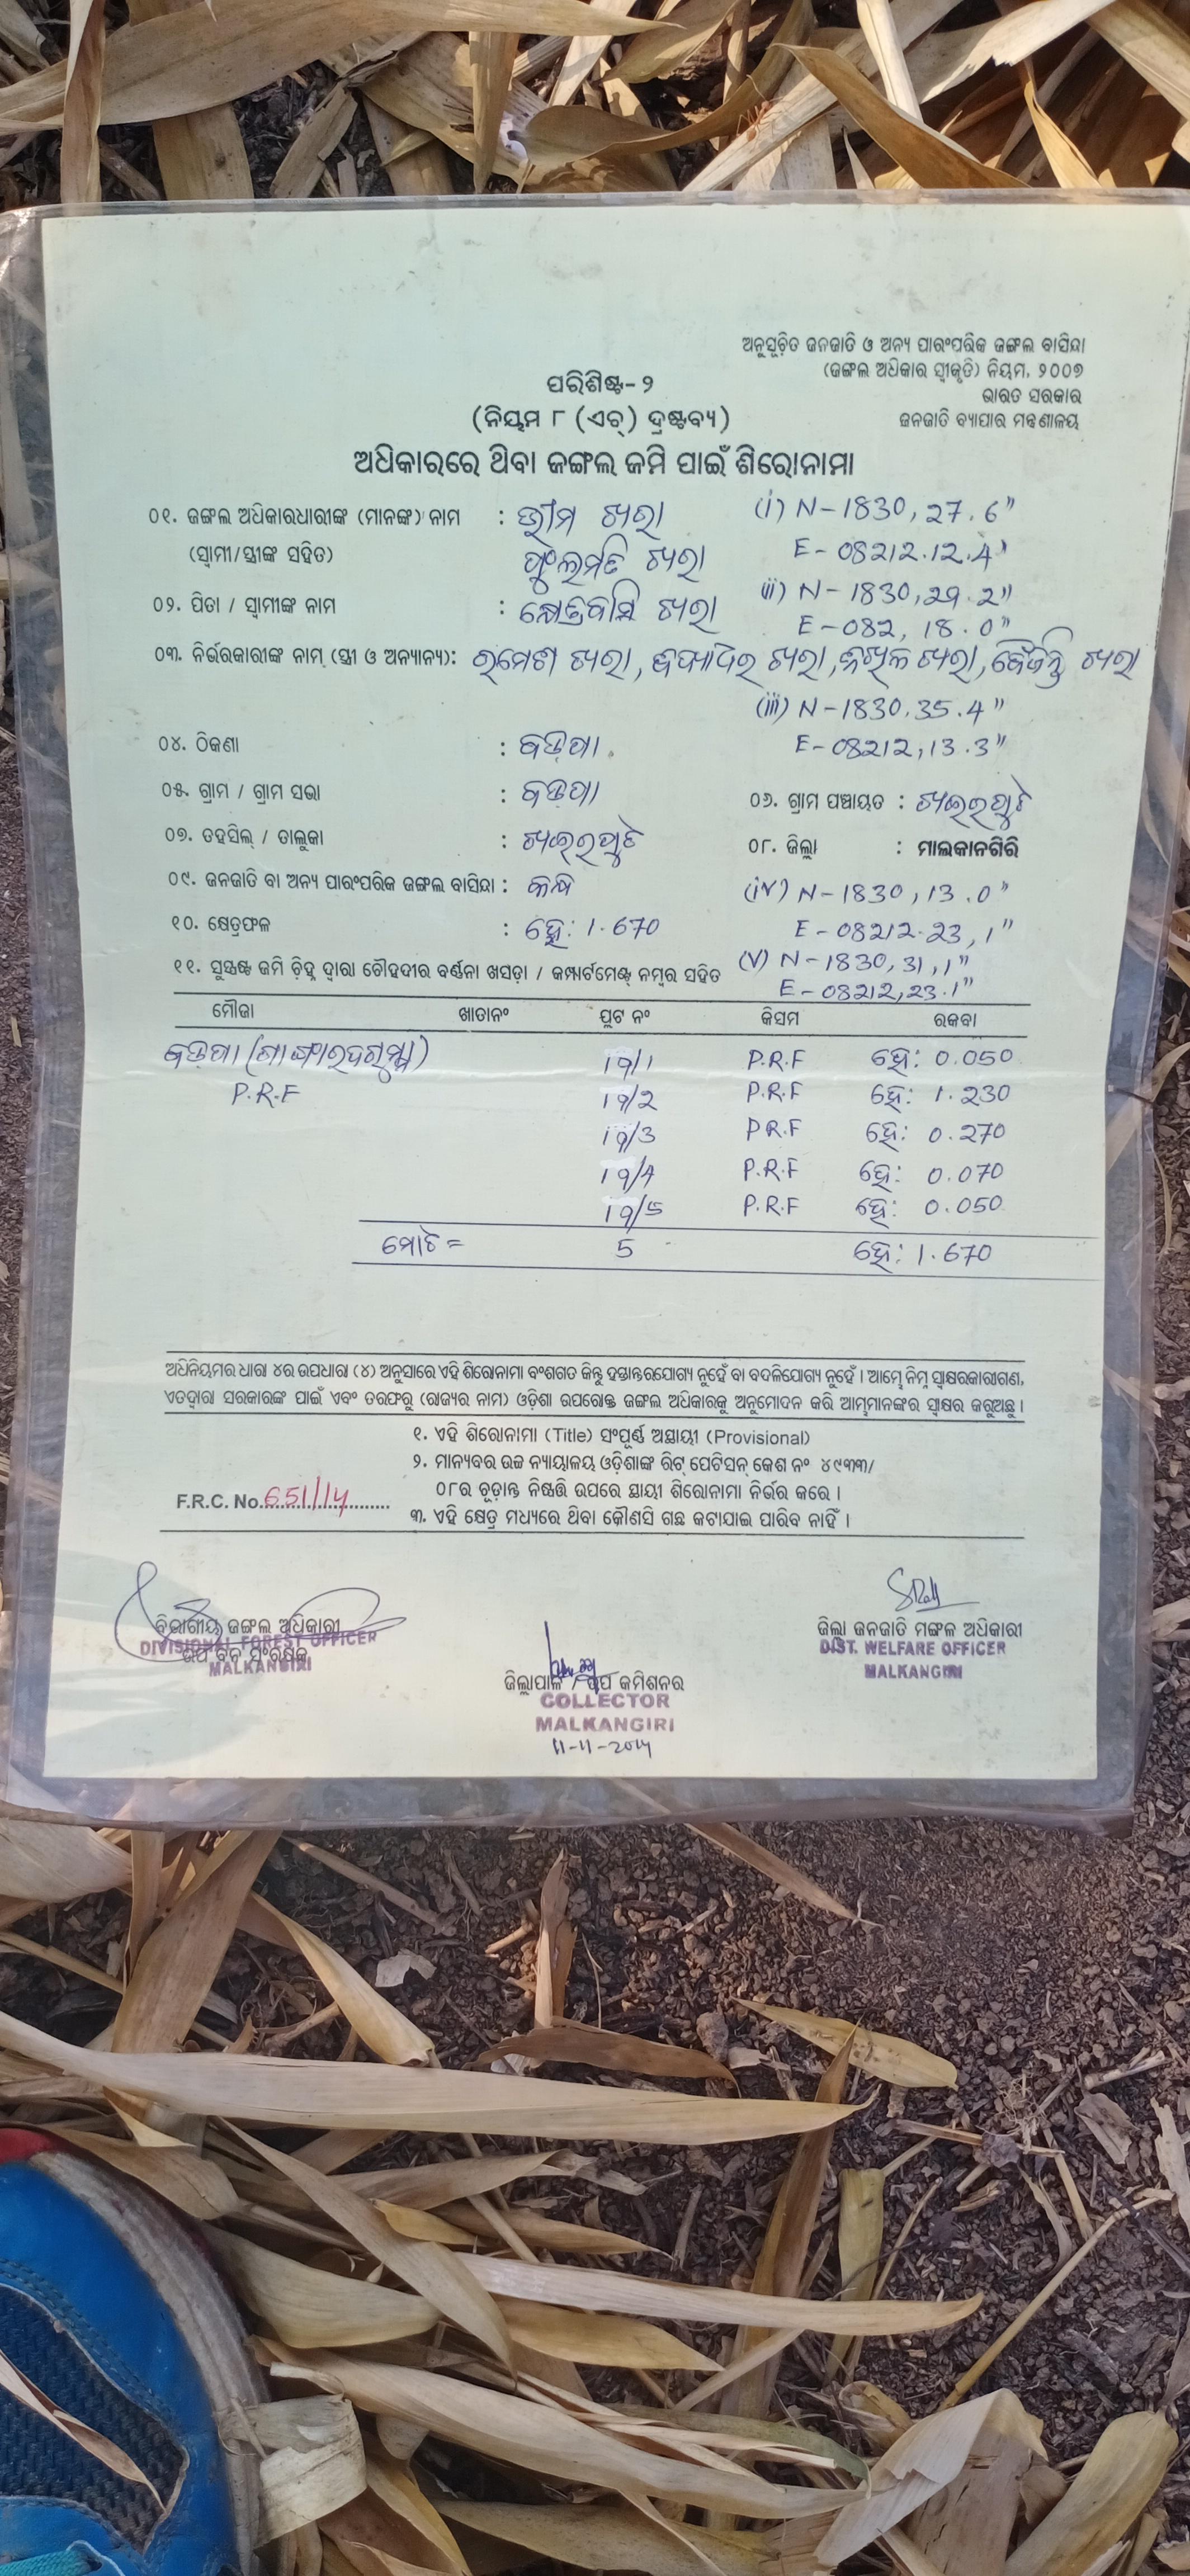 ଅନୁସୂଚିତ ଜନଜାତି ଓ ଅନ୍ୟ ପାରଂପରିକ ଜଙ୍ଗଲ ବାସିନ୍ଦା
(ଜଙ୍ଗଲ ଅଧିକାର ସ୍ୱୀକୃତି) ନିୟମ, ୨୦୦୭
ଭାରତ ସରକାର
ଜନଜାତି ବ୍ୟାପାର ମନ୍ତ୍ରଣାଳୟ
ପରିଶିଷ୍ଟ-୨
(ନିୟମ ୮ (ଏଚ୍) ଦ୍ରଷ୍ଟବ୍ୟ)
ଅଧିକାରରେ ଥିବା ଜଙ୍ଗଲ ଜମି ପାଇଁ ଶିରୋନାମା
୦୧. ଜଙ୍ଗଲ ଅଧିକାରଧାରୀଙ୍କ (ମାନଙ୍କ) ନାମ : ଭୀମ ଖରା (i) N-1830,27.6"
(ସ୍ୱାମୀ/ସ୍ତ୍ରୀଙ୍କ ସହିତ) ଫୁଲମତି ଖରା E-08212.12.4"
୦୨. ପିତା / ସ୍ୱାମୀଙ୍କ ନାମ : ଖରା (ii) N-1830,29.2"
E-082,18.0"
୦୩. ନିର୍ଭରକାରୀଙ୍କ ନାମ (ସ୍ତ୍ରୀ ଓ ଅନ୍ୟାନ୍ୟ): ରମେଶ ଖରା, ଖରା, ଖରା, ଖରା
(iii) N-1830.35.4"
୦୪. ଠିକଣା : ବଡ଼ପା E-08212,13.3"
୦୫. ଗ୍ରାମ / ଗ୍ରାମ ସଭା : ବଡପା ୦୬. ଗ୍ରାମ ପଞ୍ଚାୟତ : ଖଇରପୁଟ
୦୭. ତହସିଲ୍ / ତାଲୁକା : ଖଇରପୁଟ ୦୮. ଜିଲ୍ଲା : ମାଲକାନଗିରି
୦୯. ଜନଜାତି ବା ଅନ୍ୟ ପାରଂପରିକ ଜଙ୍ଗଲ ବାସିନ୍ଦା : କନ୍ଧ (iv) N-1830,13.0"
୧୦. କ୍ଷେତ୍ରଫଳ : ହେ: 1.670 E-08212.23,1"
୧୧. ସୁସ୍ପଷ୍ଟ ଜମି ଚିହ୍ନ ଦ୍ୱାରା ଚୌହଦୀର ବର୍ଣ୍ଣନା ଖସଡ଼ା / କମ୍ପାର୍ଟମେଣ୍ଟ୍ ନମ୍ବର ସହିତ (v) N-1830,31,1"
E-08212,23.1"
ମୌଜା ଖାତାନଂ ପ୍ଲଟ ନଂ କିସମ ରକବା
ବଡ଼ପା 19/1 P.R.F ହେ: 0.050
P.R.F 19/2 P.R.F ହେ: 1.230
19/3 P.R.F ହେ: 0.270
19/4 P.R.F ହେ: 0.070
19/5 P.R.F ହେ: 0.050
ମୋଟ = 5 ହେ: 1.670
ଅଧିନିୟମର ଧାରା ୪ର ଉପଧାରା (୪) ଅନୁସାରେ ଏହି ଶିରୋନାମା ବଂଶଗତ କିନ୍ତୁ ହସ୍ତାନ୍ତରଯୋଗ୍ୟ ନୁହେଁ ବା ବଦଳିଯୋଗ୍ୟ ନୁହେଁ । ଆମ୍ଭେ ନିମ୍ନ ସ୍ୱାକ୍ଷରକାରୀଗଣ,
ଏତଦ୍ଵାରା ସରକାରଙ୍କ ପାଇଁ ଏବଂ ତରଫରୁ (ରାଜ୍ୟର ନାମ) ଓଡ଼ିଶା ଉପରୋକ୍ତ ଜଙ୍ଗଲ ଅଧିକାରକୁ ଅନୁମୋଦନ କରି ଆମ୍ଭମାନଙ୍କର ସ୍ୱାକ୍ଷର କରୁଅଛୁ ।
୧. ଏହି ଶିରୋନାମା (Title) ସଂପୂର୍ଣ୍ଣ ଅସ୍ଥାୟୀ (Provisional)
୨. ମାନ୍ୟବର ଉଚ୍ଚ ନ୍ୟାୟାଳୟ ଓଡ଼ିଶାଙ୍କ ରିଟ୍ ପେଟିସନ୍ କେଶ ନଂ ୪୯୩୩/
୦୮ର ଚୂଡ଼ାନ୍ତ ନିଷ୍ପତ୍ତି ଉପରେ ସ୍ଥାୟୀ ଶିରୋନାମା ନିର୍ଭର କରେ ।
F.R.C. No. 651/14
୩. ଏହି କ୍ଷେତ୍ର ମଧ୍ୟରେ ଥିବା କୌଣସି ଗଛ କଟାଯାଇ ପାରିବ ନାହିଁ ।
ବିଭାଗୀୟ ଜଙ୍ଗଲ ଅଧିକାରୀ
DIVISIONAL FOREST OFFICER
ଉପ ବନ ସଂରକ୍ଷକ
MALKANGIRI
ଜିଲ୍ଲାପାଳ / ଉପ କମିଶନର
COLLECTOR
MALKANGIRI
11-11-2014
ଜିଲ୍ଲା ଜନଜାତି ମଙ୍ଗଳ ଅଧିକାରୀ
DIST. WELFARE OFFICER
MALKANGIRI